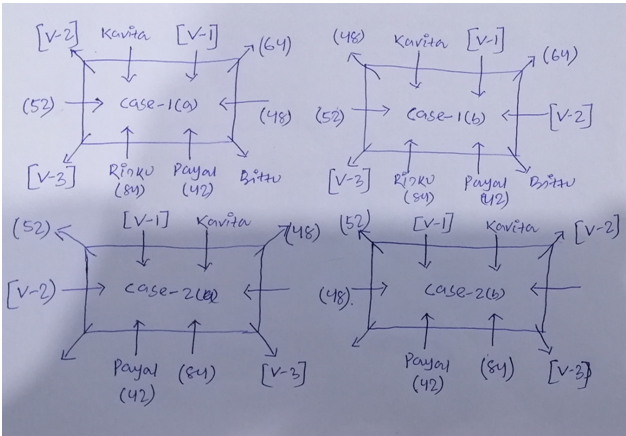 [V-2] Kavita [V-1] (64)
(52) Case-1(a) (48)
[V-3] Rinku Payal Bittu
(84) (42)
(48) Kavita [V-1] (64)
(52) Case-1(b) [V-2]
[V-3] Rinku Payal Bittu
(84) (42)
(52) [V-1] Kavita (48)
[V-2) Case-2(a)
Payal (84) [V-3]
(42)
(52) [V-1] Kavita [V-2]
(48) Case-2(b)
Payal (84) [V-3]
(42)